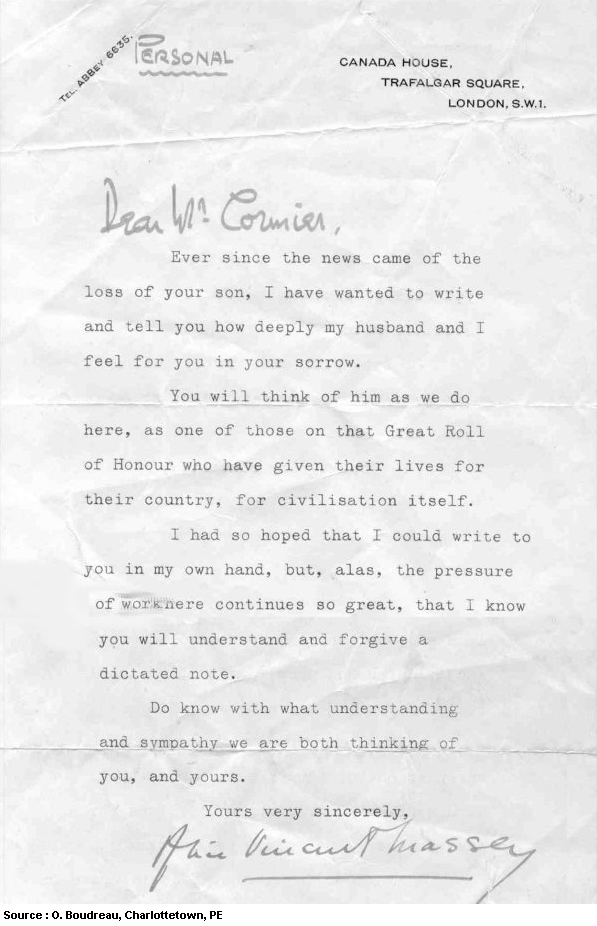 TEL. ABBEY 6635.
PERSONAL
CANADA HOUSE,
TRAFALGAR SQUARE,
LONDON, S.W.1.
Dear Mr Cormier,
Ever since the news came of the
loss of your son, I have wanted to write
and tell you how deeply my husband and I
feel for you in your sorrow.
You will think of him as we do
here, as one of those on that Great Roll
of Honour who have given their lives for
their country, for civilisation itself.
I had so hoped that I could write to
you in my own hand, but, alas, the pressure
of work here continues so great, that I know
you will understand and forgive a
dictated note.
Do know with what understanding
and sympathy we are both thinking of
you, and yours.
Yours very sincerely,
Alice Vincent Massey
Source : O. Boudreau, Charlottetown, PE